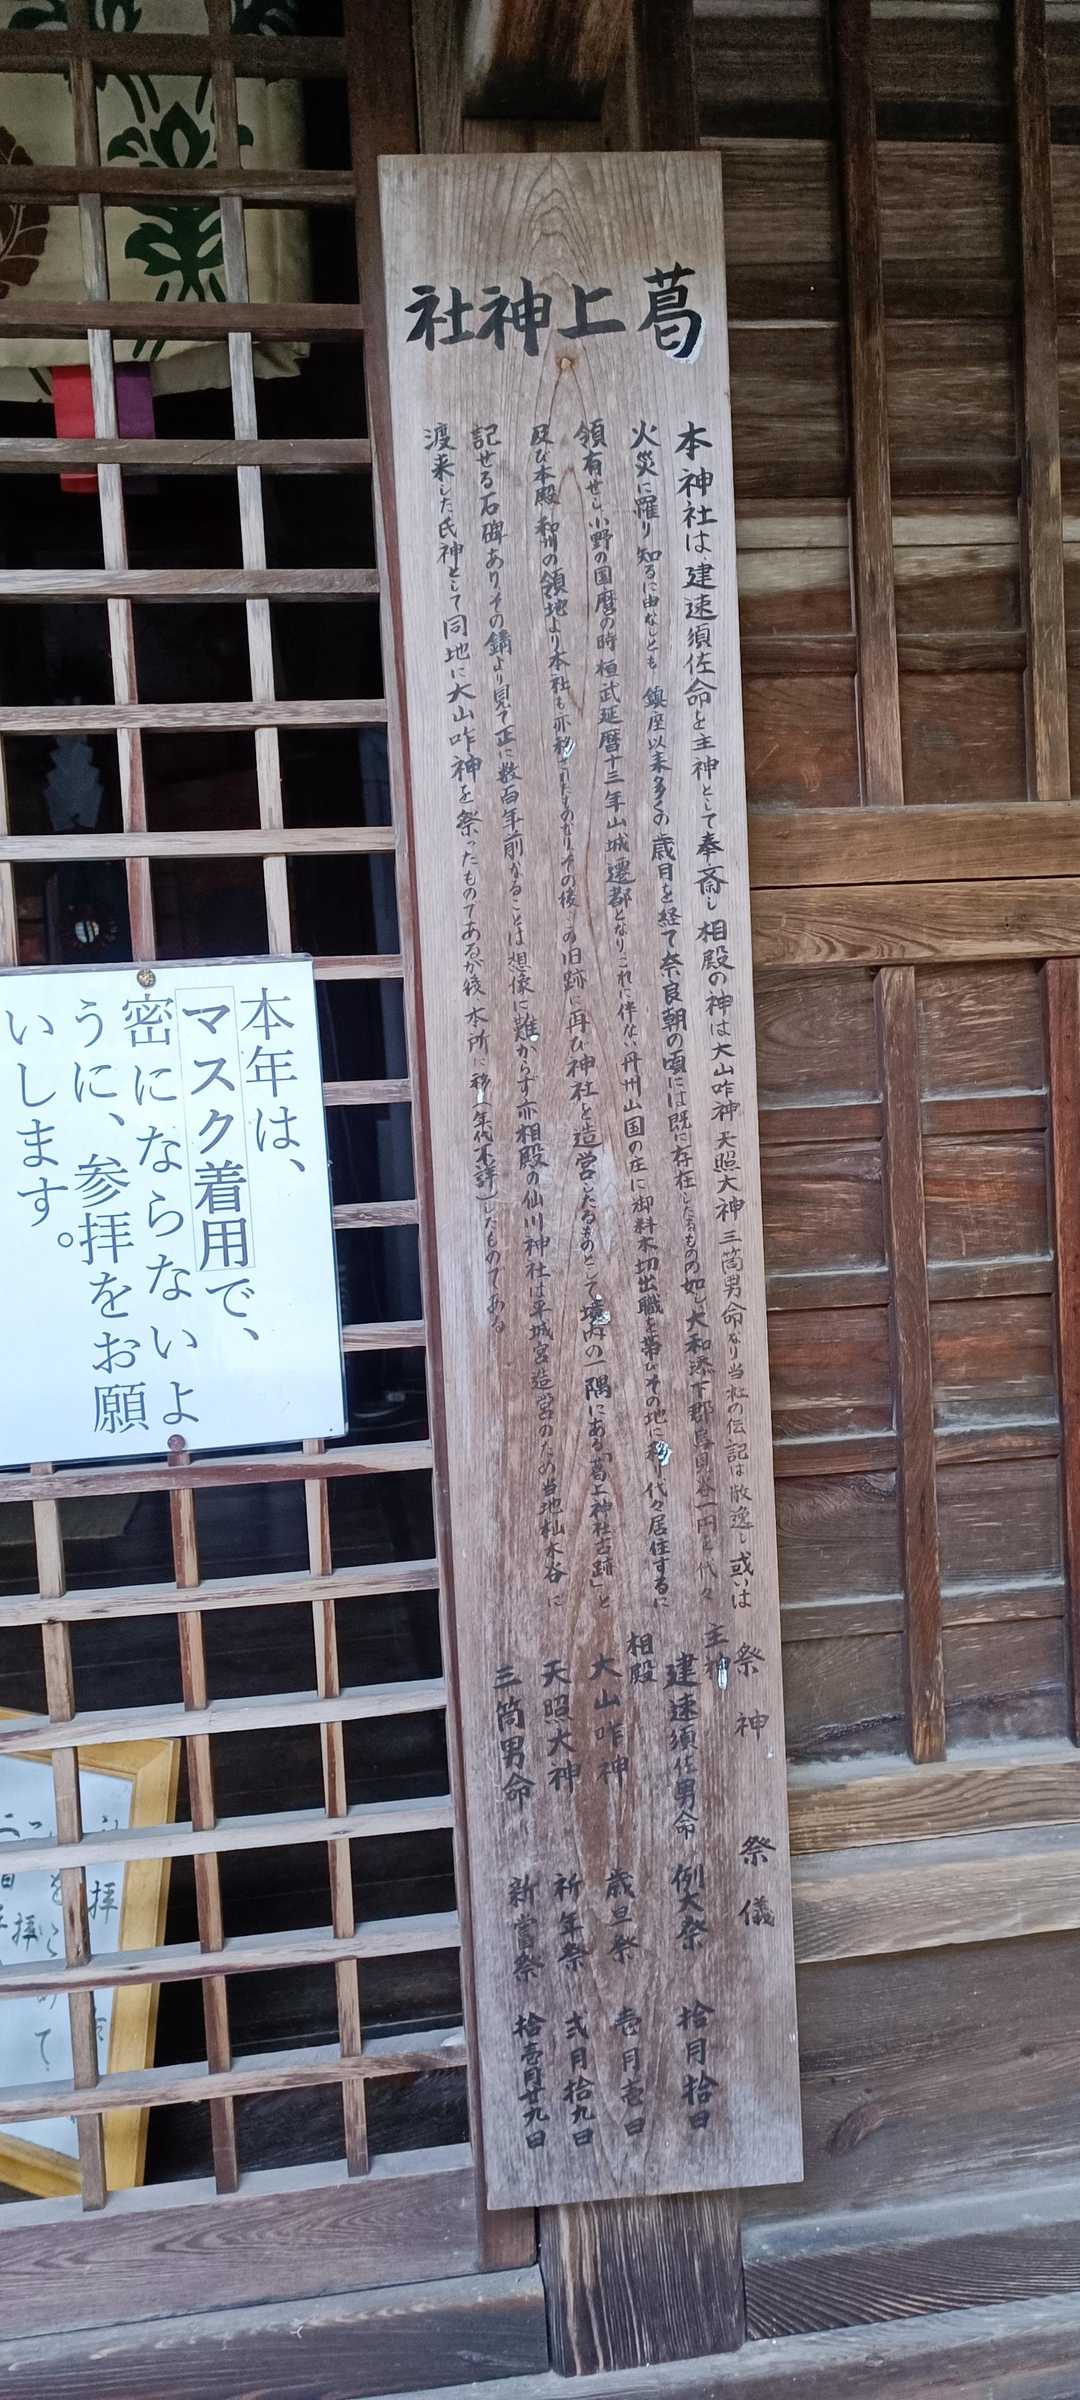 葛上神社
本神社は、建速須佐命を主神として奉斎し 相殿の神は大山咋神 天照大神 三筒男命なり当社の伝記は散逸し或いは
火災に罹り 知るに由なしとも 鎮座以来多くの歳月を経て奈良朝の頃には既に存在したるものの如し大和添下郡鳥見谷一円を代々
領有せし小野の国麿の時 桓武延暦十三年山城遷都となりこれに伴ない丹州山国の庄に御料木切出職を帯びその地に移り代々居住するに
及び本殿、和州の領地より本社も亦移されたものなりその後、この旧跡に再び神社を造営したるものにして境内の一隅にある「葛上神社古跡」と
記せる石碑ありその銹より見て正に数百年前なることは想像に難からず亦相殿の仙川神社は平城宮造営のため当地杣木谷に
渡来した氏神として同地に大山咋神を祭ったものであるが後、本所に移(年代不詳)したものである
祭神
主神
建速須佐男命
相殿
大山咋神
天照大神
三筒男命
祭儀
例大祭 拾月拾日
歳旦祭 壱月壱日
祈年祭 弐月拾九日
新嘗祭 拾壱月廿九日
本年は、
マスク着用で、
密にならないよ
うに、参拝をお願
いします。
拝